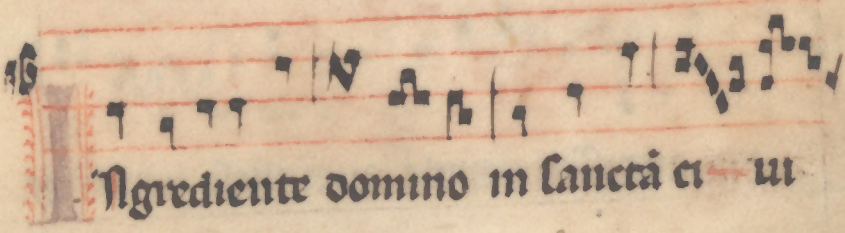 INgrediente domino in sanctā ci ui